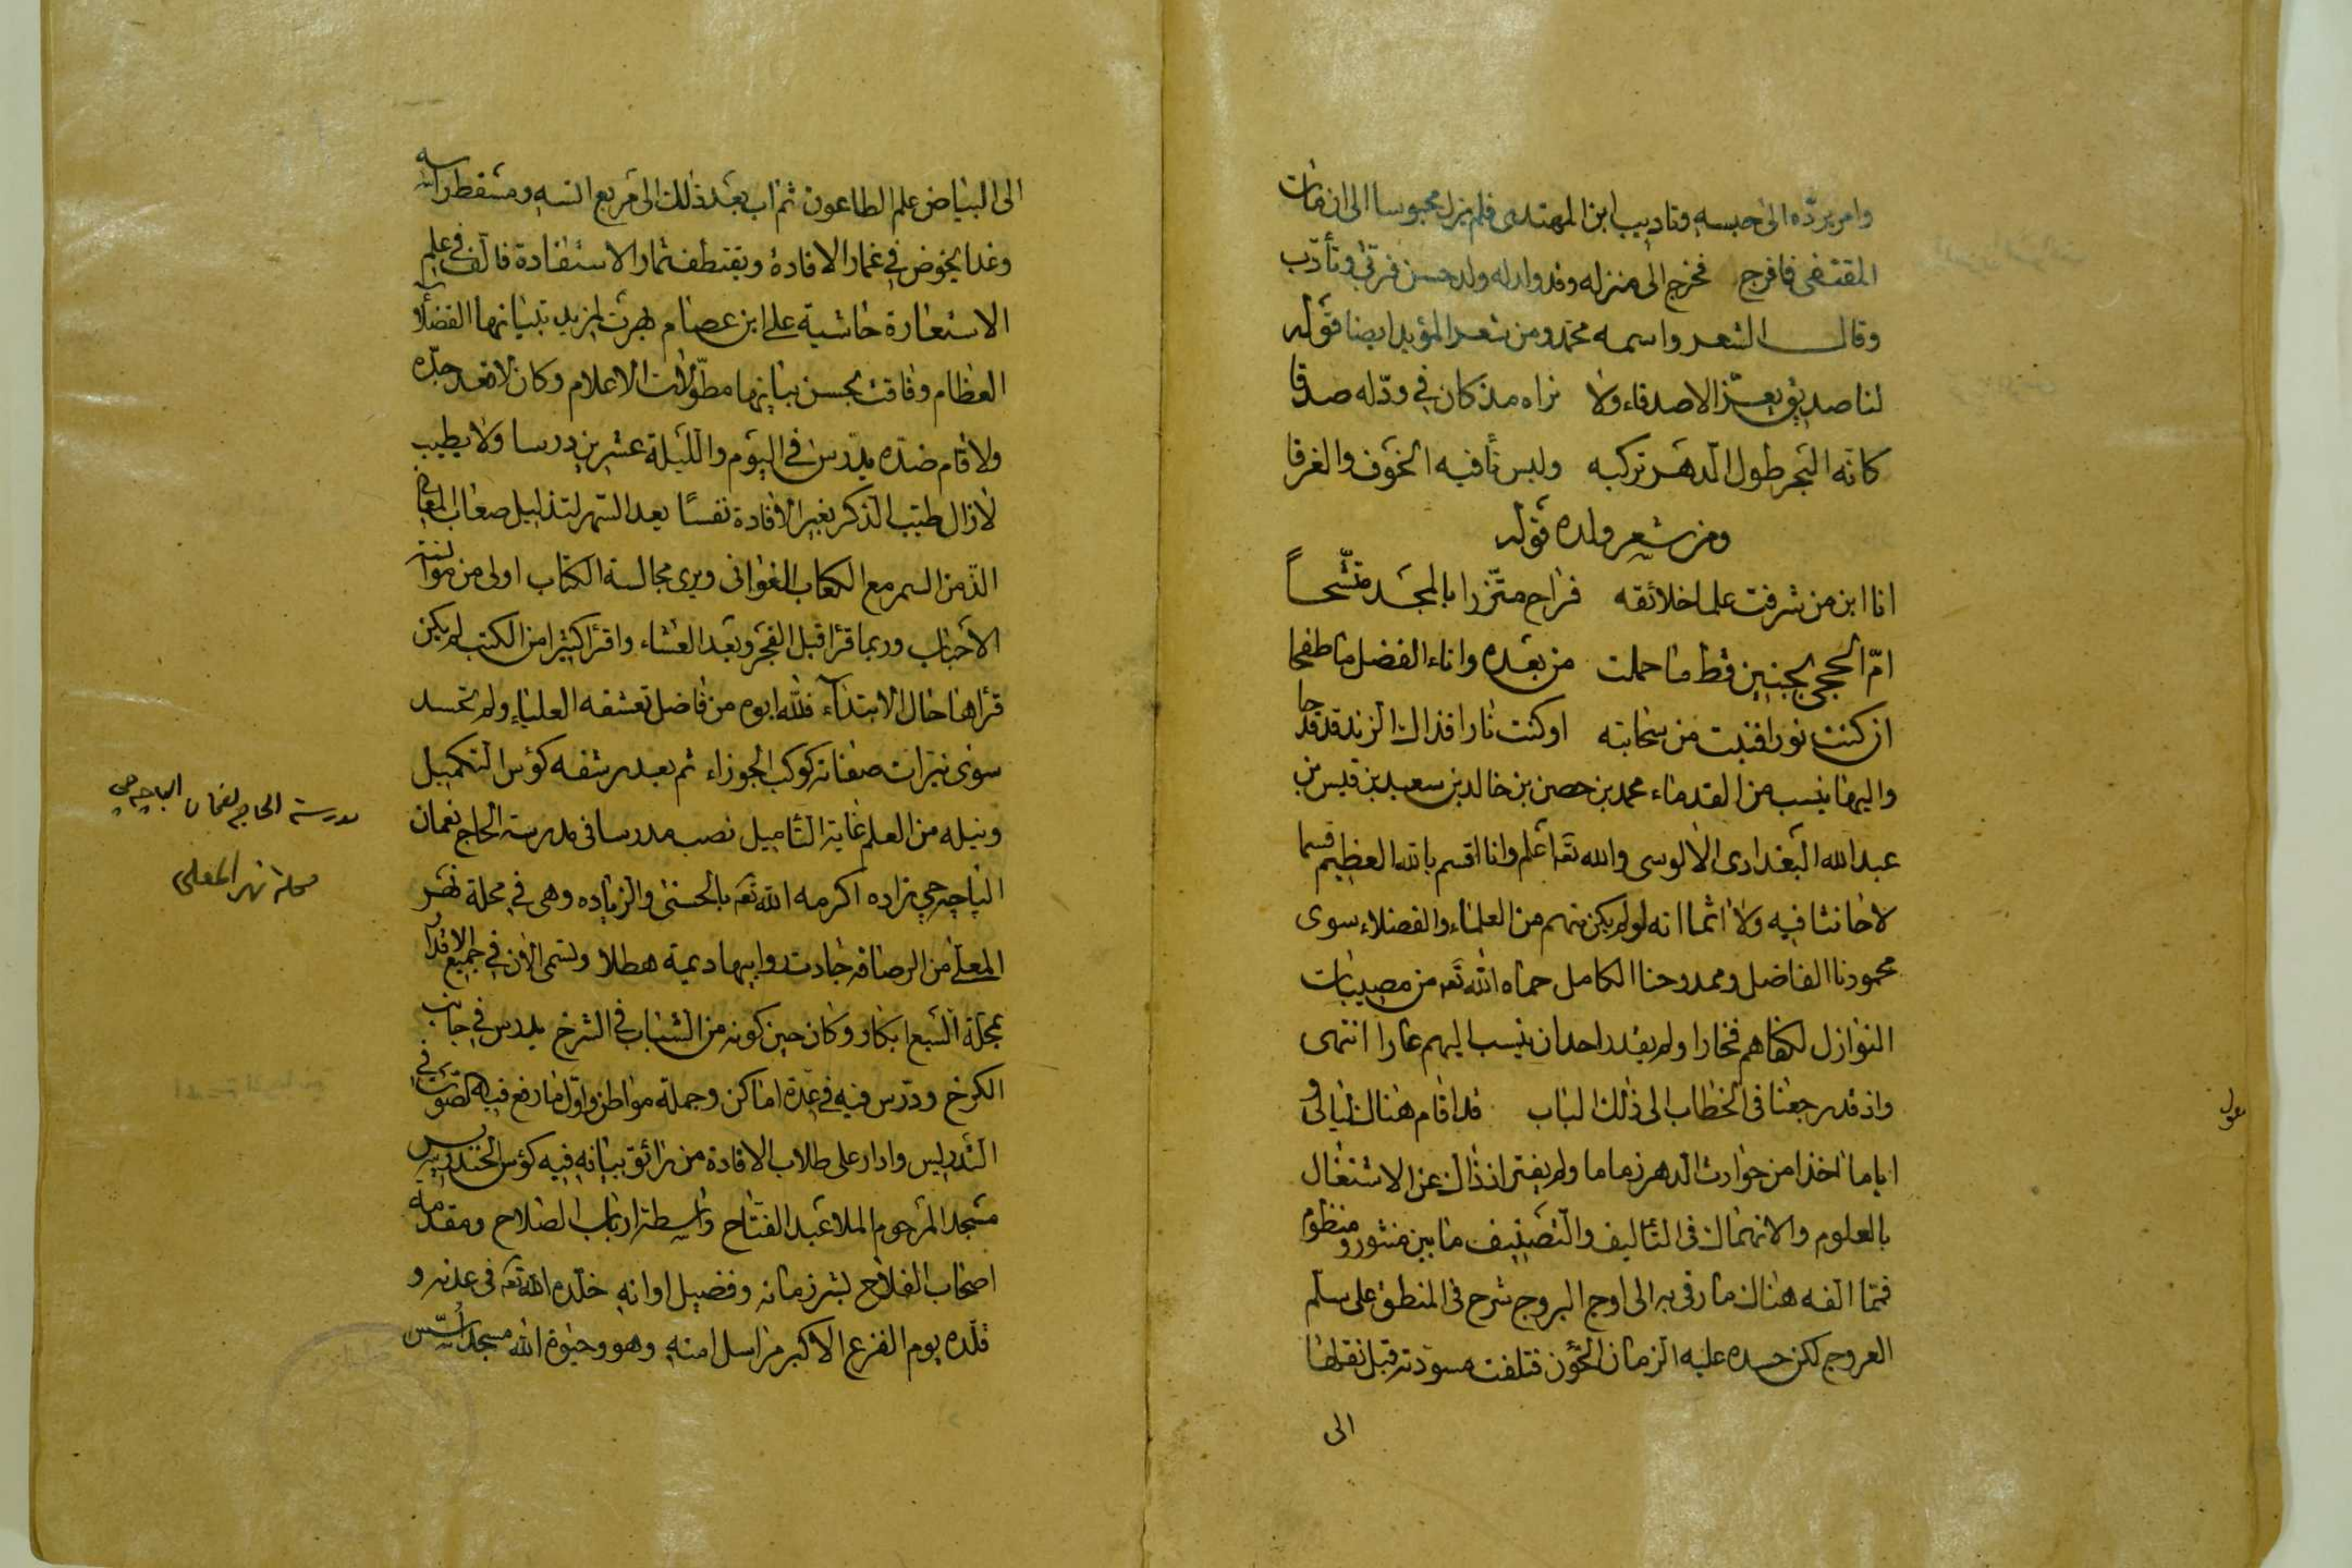 وامر برده الى حبسه وتاديب ابن المهتدى فلم يزل محبوسا الى ان مات
المقتفى فافرج فخرج الى منزله وقد ولد له ولد حسن فربى وتأدب
وقال الشعر واسمه محمد ومن شعر المؤيد ايضا قوله
لنا صديق يعز الاصدقاء ولا نراه مذ كان في ود له صدقا
كانه البحر طول الدهر تركبه وليس تأ فيه الخوف والغرقا
ومن شعر ولده قوله
انا ابن من شرفت علما خلائقه فراح متزرا بالمجد متشحاً
امّ الحجى بجنين قط ما حملت من بعده واناء الفضل ما طفحا
ان كنت نورا فنبت من سحابته او كنت نارا فذاك الزند قد قدحا
واليها ينسب من القدماء محمد بن حصن بن خالد بن سعيد بن قيس بن
عبد الله البغدادى الالوسى والله تعه اعلم وانا اقسم بالله العظيم قسما
لا حانثا فيه ولا اثما انه لو لم يكن منهم من العلماء والفضلاء سوى
محمودنا الفاضل وممدوحنا الكامل حماه الله تعه من مصيبات
النوازل لكفاهم فخارا ولم يقدر احد ان ينسب اليهم عارا انتهى
واذ قد رجعنا في الخطاب الى ذلك الباب قد اقام هناك ليالى و
اياما اخذا من حوادث الدهر زماما ولم يفتر اذ ذاك عن الاشتغال
بالعلوم والانهماك في التاليف والتصنيف ما بين منثور ومنظوم
فمما الفه هناك ما رقى به الى اوج البروج شرح في المنطق على سلم
العروج لكن حسده عليه الزمان الخؤن فتلفت مسودته قبل نقلها
الى
الى البياض علم الطاعون ثم اب بعد ذلك الى مربع انسه ومسقط راسه
وغدا يخوض في غمار الافادة ويقتطف ثمار الاستفادة فالف في علم
الاستعارة حاشية على ابن عصام بهرت بمزيد تبيانها الفضلاء
العظام وفاقت بحسن بيانها مطولات الاعلام وكان لا قعد جده
ولا قام ضده يدرس في اليوم والليلة عشرين درسا ولا يطيب
لا زال طيب الذكر بغير الافادة نفسًا يعد السهر لتذليل صعاب المعانى
الذ من السمر مع الكعاب الغوانى ويرى مجالسة الكتاب اولى من موانسة
الاحباب وربما قرا قبل الفجر وبعد العشاء واقرأ كثيرا من الكتب لم يكن
قرأها حال الابتداء فلله ابوه من فاضل تعشقه العلياء ولم تحسد
سوى نيرات صفاته كوكب الجوزاء ثم بعد رشفه كؤس التكميل
ونيله من العلم غاية التاميل نصب مدرسا في مدرسة الحاج نعمان
الپاچه جي زاده اكرمه الله تعه بالحسنى والزياده وهى في محلة نهر
المعلى من الرصافه جادت روابيها ديمة هطلا وتسمى الان في جميع الافواه
بمحلة السبع ابكار وكان حين كونه من الشباب في الشرخ يدرس في جانب
الكرخ ودرس فيه في عدة اماكن وجملة مواطن واول ما رفع فيه الصوت في
التدريس وادار على طلاب الافادة من رائق بيانه فيه كؤس الخندريس
مسجد المرحوم الملا عبد الفتاح واسطة ارباب الصلاح ومقدمة
اصحاب الفلاح بشر زمانه وفضيل اوانه خلده الله تعه في عدنه و
قلده يوم الفزع الاكبر مراسل امنه وهو وحيوة الله مسجد اسّس
مدرسة الحاج نعمان الباچه جي
محلة نهر المعلى